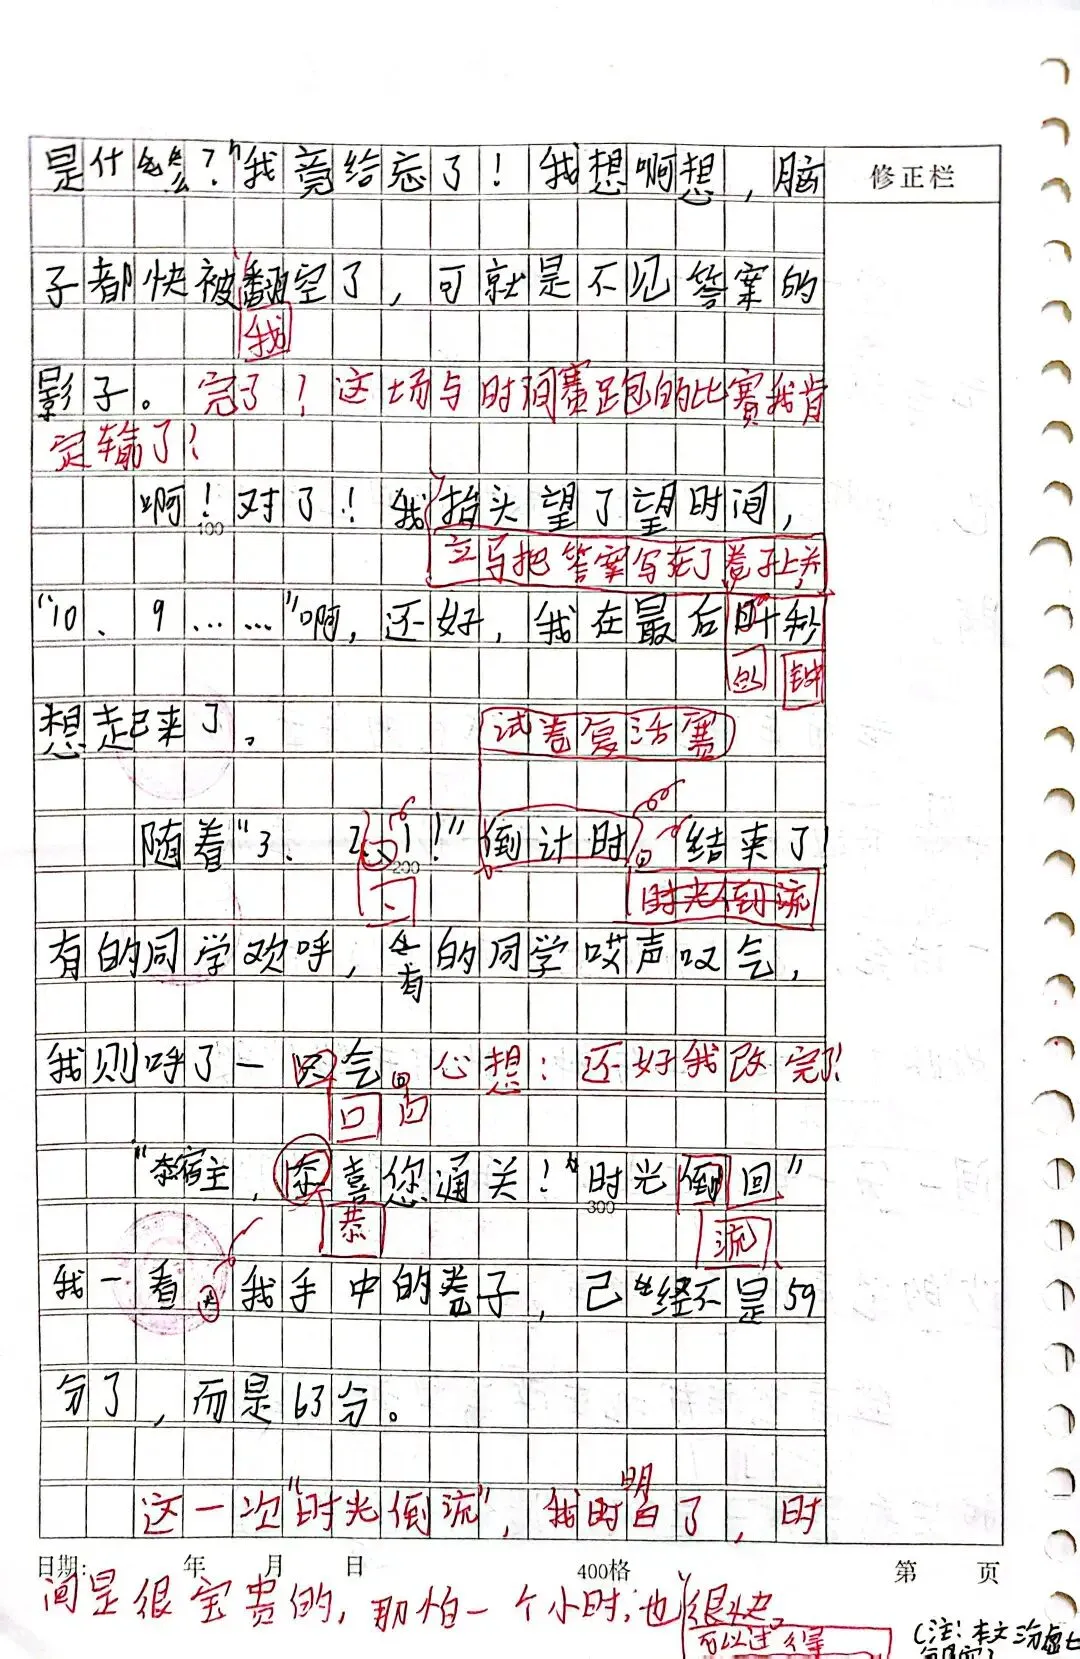 是什么？"我竟给忘了！我想啊想，脑
修正栏
子都快被翻空了，可就是不见答案的
我
影子。完了！这场与时间赛跑的比赛我肯
定输了？
啊！对了！我抬头望了望时间，
100
立马把答案写在了卷子上，
"10、9……"啊，还好，我在最后时秒
的 钟
想起来了。
试卷复活赛
随着"3、2、1！"倒计时 结束了！
200
时光倒流
有的同学欢呼，有的同学哎声叹气，
我则呼了一口气 心想：还好我改完了
口
"宿主，恭喜您通关！"时光倒回"
300
恭 流
我一看，我手中的卷子，已经不是59
分了，而是63分。
这一次"时光倒流"，我明白了，时
日期： 年 月 日 400格 第 页
间是很宝贵的，那怕一个小时，也很快。
可以过得
（注：本文